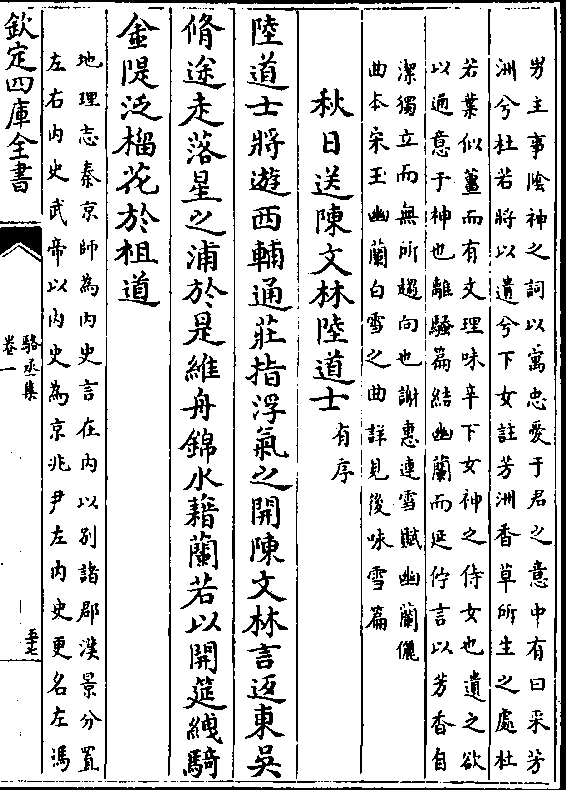 男主事陰神之詞以寓忠愛于君之意中有曰采芳
洲兮杜若將以遺兮下女註芳洲香草所生之處杜
若葉似薑而有文理味辛下女神之侍女也遺之欲
以通意于神也離騷篇結幽蘭而延佇言以芳香自
潔獨立而無所趨向也謝惠連雪賦幽蘭儷
曲本宋玉幽蘭白雪之曲詳見後咏雪篇
秋日送陳文林陸道士有序
陸道士將遊西輔通莊指浮氣之開陳文林言返東吳
脩途走落星之浦於是維舟錦水藉蘭若以開筵綫騎
金隄泛榴花於祖道
地理志秦京師為内史言在内以别諸郡漢景分置
左右内史武帝以内史為京兆尹左内史更名左馮
欽定四庫全書
駱丞集
卷一
五十七